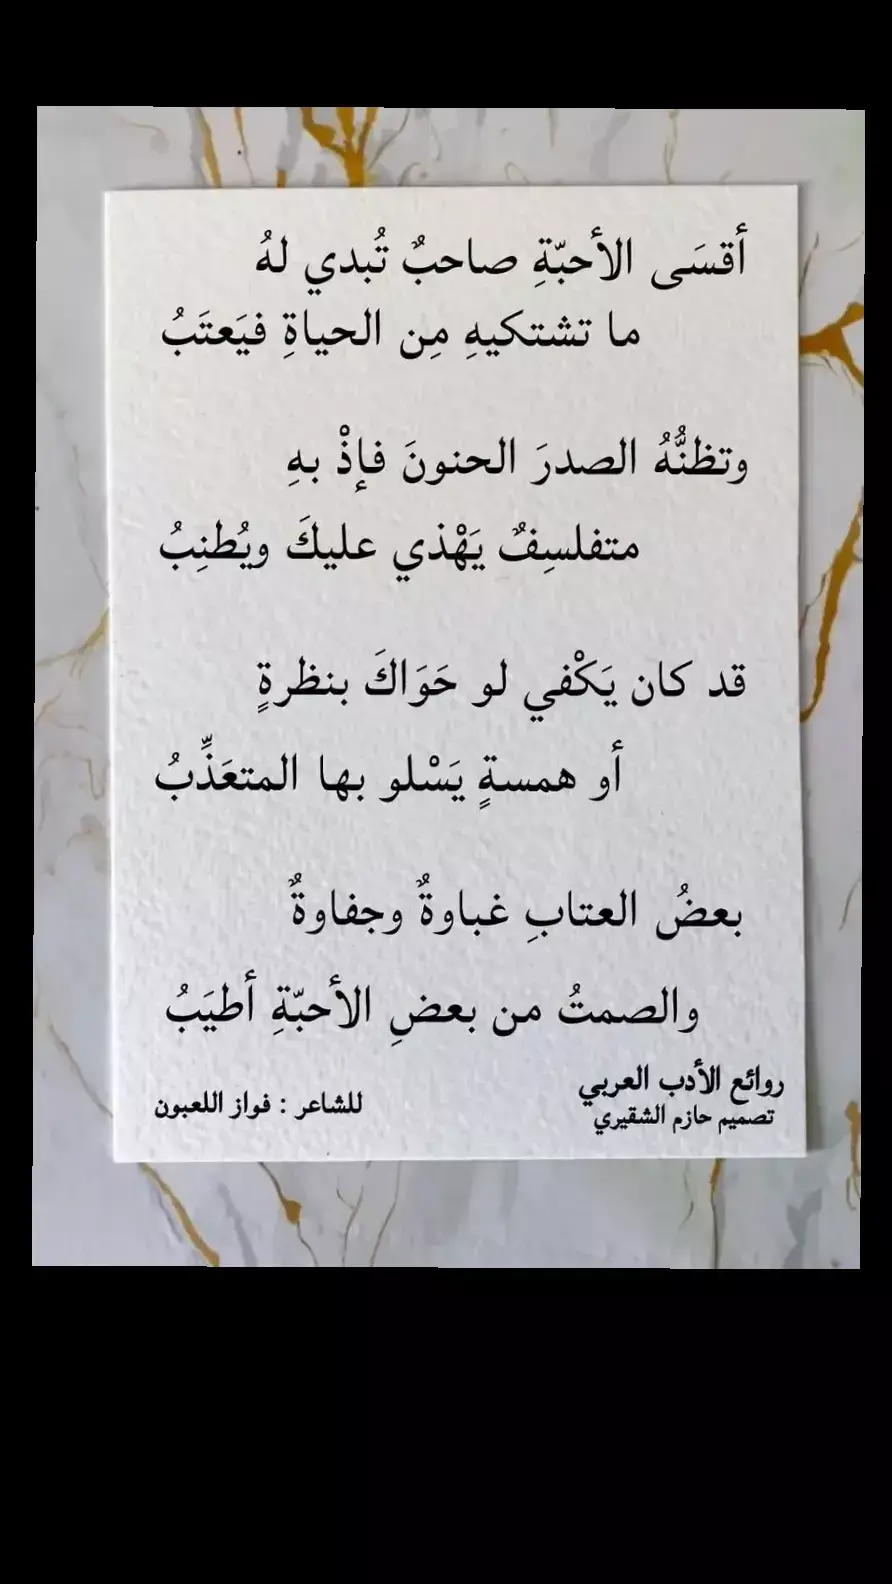 أقسَى الأحبّةِ صاحبٌ تُبدي لهُ
ما تشتكيهِ مِن الحياةِ فيَعتَبُ
وتظنُّهُ الصدرَ الحنونَ فإذْ بهِ
متفلسِفٌ يَهْذي عليكَ ويُطنِبُ
قد كان يَكْفي لو حَوَاكَ بنظرةٍ
أو همسةٍ يَسْلو بها المتعَذِّبُ
بعضُ العتابِ غباوةٌ وجفاوةٌ
والصمتُ من بعضِ الأحبّةِ أطيَبُ
روائع الأدب العربي
تصميم حازم الشقيري
للشاعر : فواز اللعبون